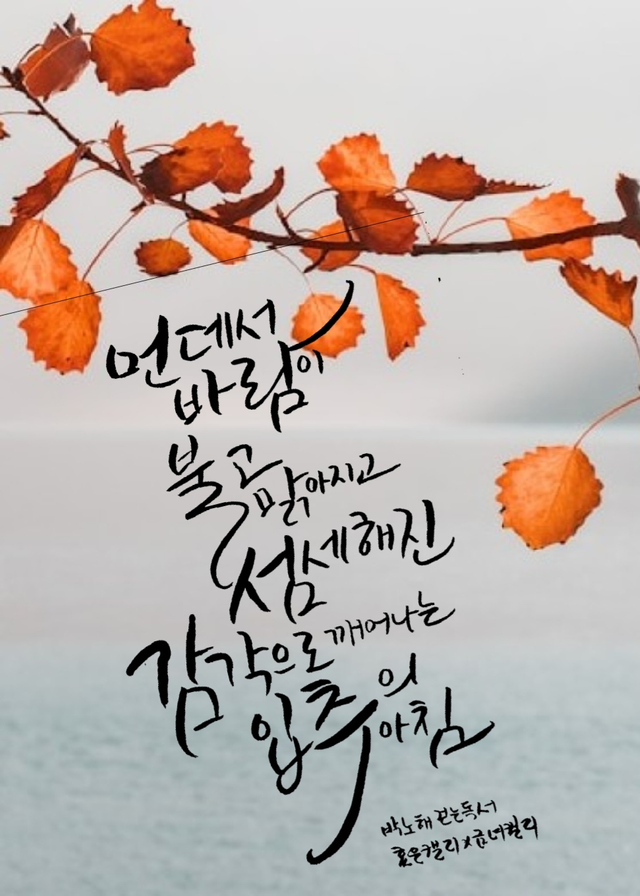 먼데서
바람이
불고
맑아지고
섬세해진
감각으로 깨어나는
입추의
아침
박노해 걷는독서